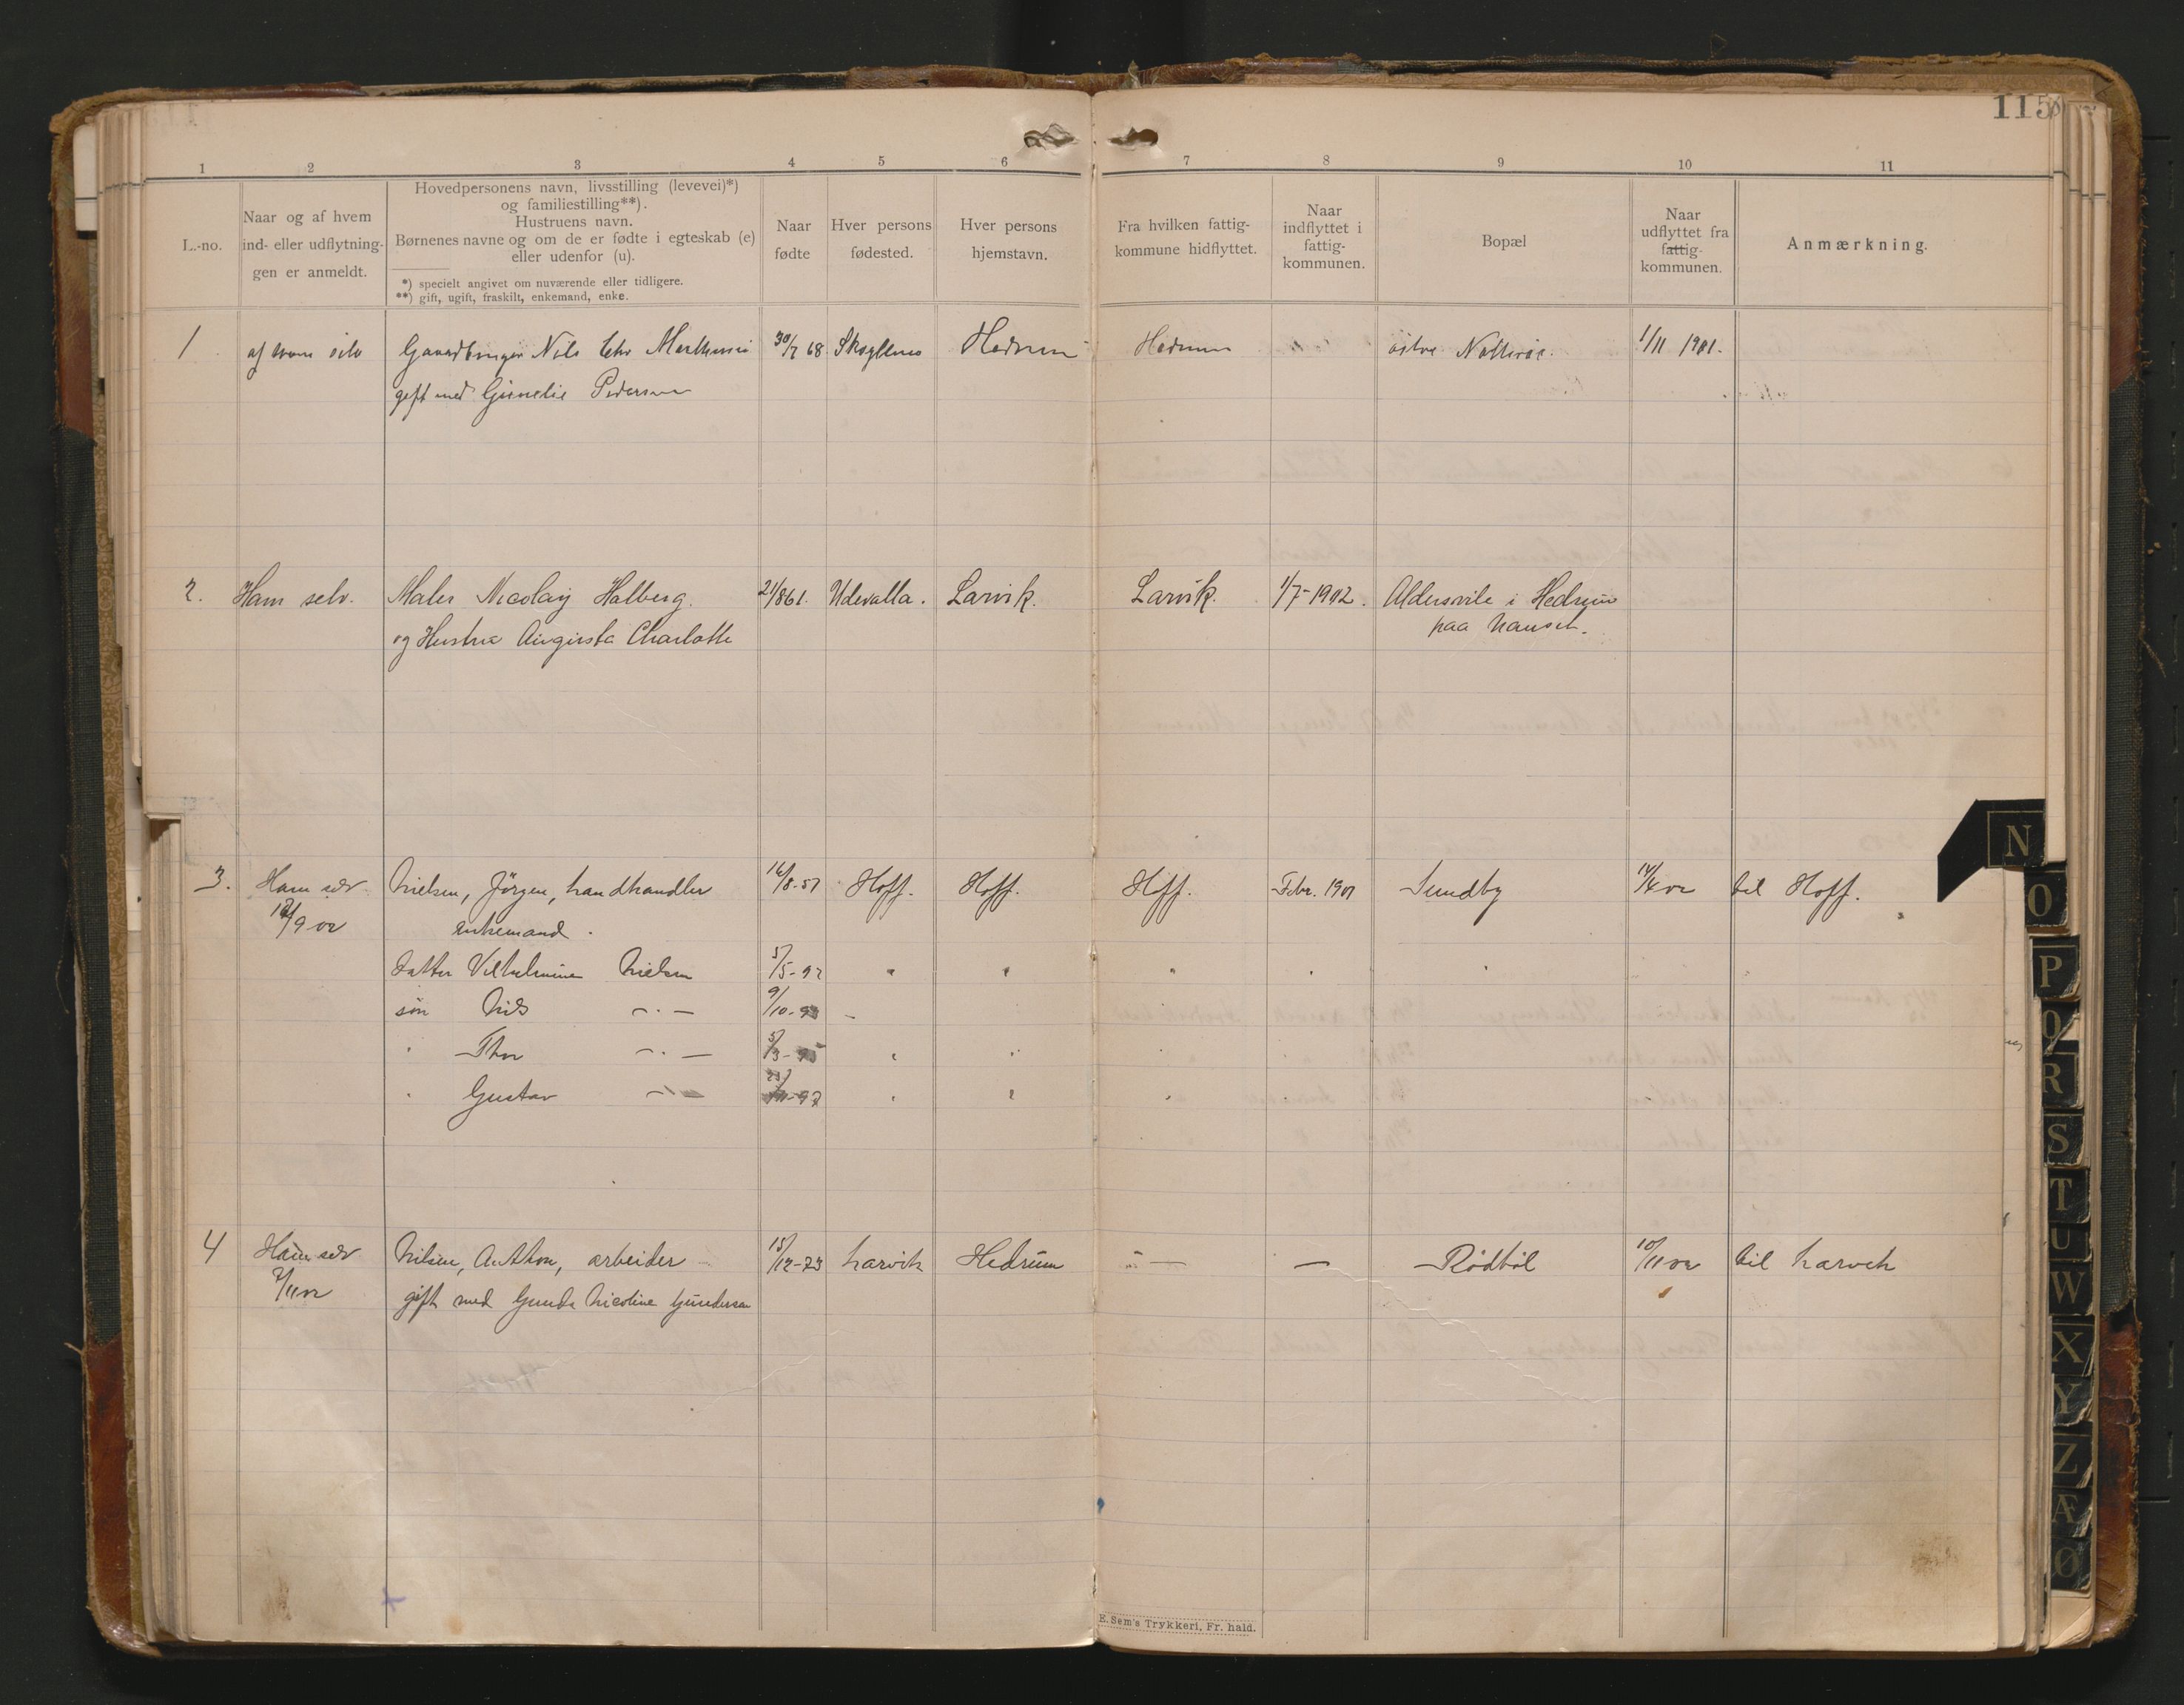 115
1 2 3 4 5 6 7 8 9 10 11
L.-no.
Naar og af hvem
ind- eller udflytnin-
gen er anmeldt.
Hovedpersonens navn, livsstilling (levevei)*)
og familiestilling**).
Hustruens navn.
Børnenes navne og om de er fødte i egteskab (e)
eller udenfor (u).
*) specielt angivet om nuværende eller tidligere.
**) gift, ugift, fraskilt, enkemand, enke.
Naar
fødte
Hver persons
fødested.
Hver persons
hjemstavn.
Fra hvilken fattig-
kommune hidflyttet.
Naar
indflyttet i
fattig-
kommunen.
Bopæl
Naar
udflyttet fra
fattig-
kommunen.
Anmærkning.
1 af ham selv Gaardbruger Nils Chr 30/7 68 Hedrum Hedrum østre 1/11 1901.
gift med Pedersen
2. Ham selv. Maler Nicolay Halberg. 21/861. Udevalla. Larvik. Larvik. 1/7-1902. Aldersvile i Hedrum
og Hustru Augusta Charlotte paa Nanset.
3. Ham selv Nielsen, Jörgen, handhandler 16/8-57 Hoff. Hoff. Hoff. Febr. 1901 Sundby 14/4 02 til Hoff.
12/9 02 enkemand.
datter Vilhelmine Nielsen 5/5-92 " " " " "
søn Nils -"- 9/10-93 -
" Thor -"- 5/3-95 " " " "
" Gustav -"- 97 " " " "
4 Ham selv Nilsen, Anthon, arbeider 15/12-73 Larvik Hedrum - - Rödböl 10/11 02 til Larvik
7/11 02 gift med Gunda Nicoline Gundersen
N
O
P
Q
R
S
T
U
W
X
Y
Z
Æ
Ø
E. Sem's Trykkeri, Fr. hald.